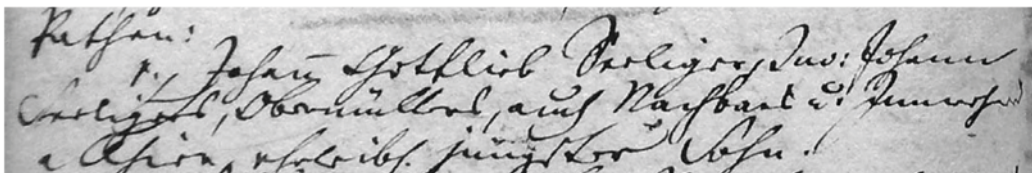 Pathen:
1., Johann Gottlieb Seeliger, Juv: Johann
Seeligers, Obermüllers, auch Nachbars u. Innwohn
eheleibl. jüngster Sohn.